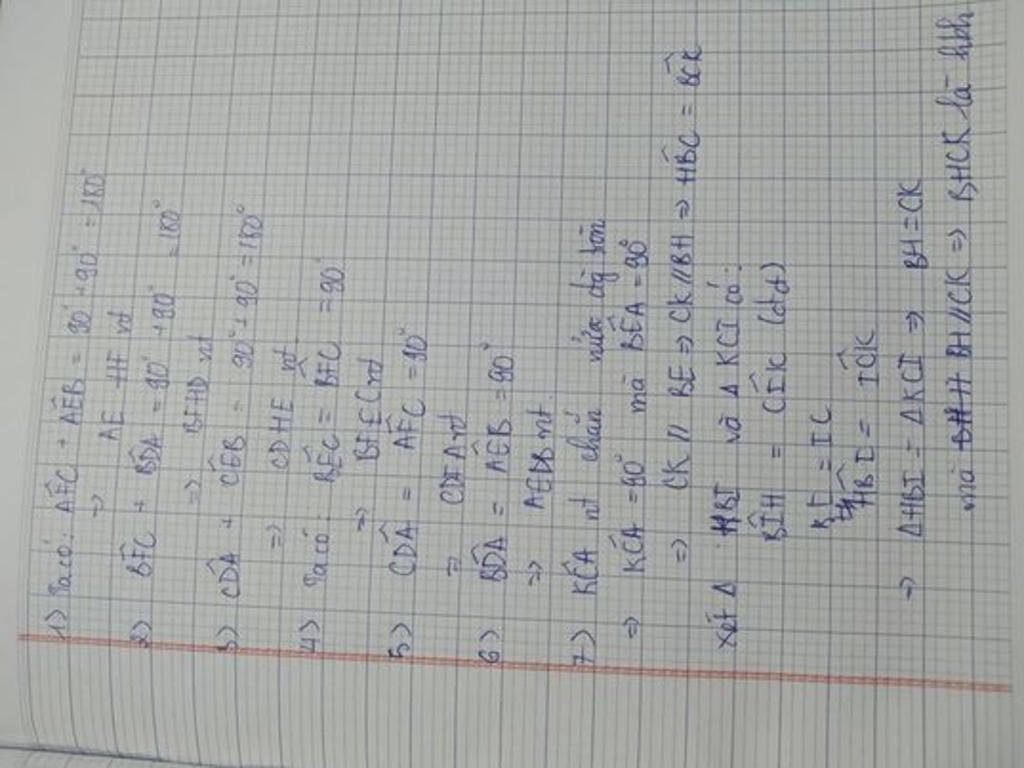 1) Ta có: AFC + AEB = 90° + 90° = 180°
=> AE HF nt
2) BFC + BDA = 90° + 90° = 180°
=> BFHD nt
3) CDA + CEB = 90° + 90° = 180°
=> CDHE nt
4) Ta có: BEC = BFC = 90°
=> BFEC nt
5) CDA = AFC = 90°
=> CDFA nt
6) BDA = AEB = 90°
=> AEDB nt
7) KCA nt chắn nửa đg tròn
=> KCA = 90° mà BEA = 90°
=> CK // BE => CK // BH => HBC = BCK
Xét Δ HBI và Δ KCI có:
BIH = CIK (đđ)
BI = IC
HBI = ICK
=> ΔHBI = ΔKCI => BH = CK
mà BH // CK => BHCK là hbh